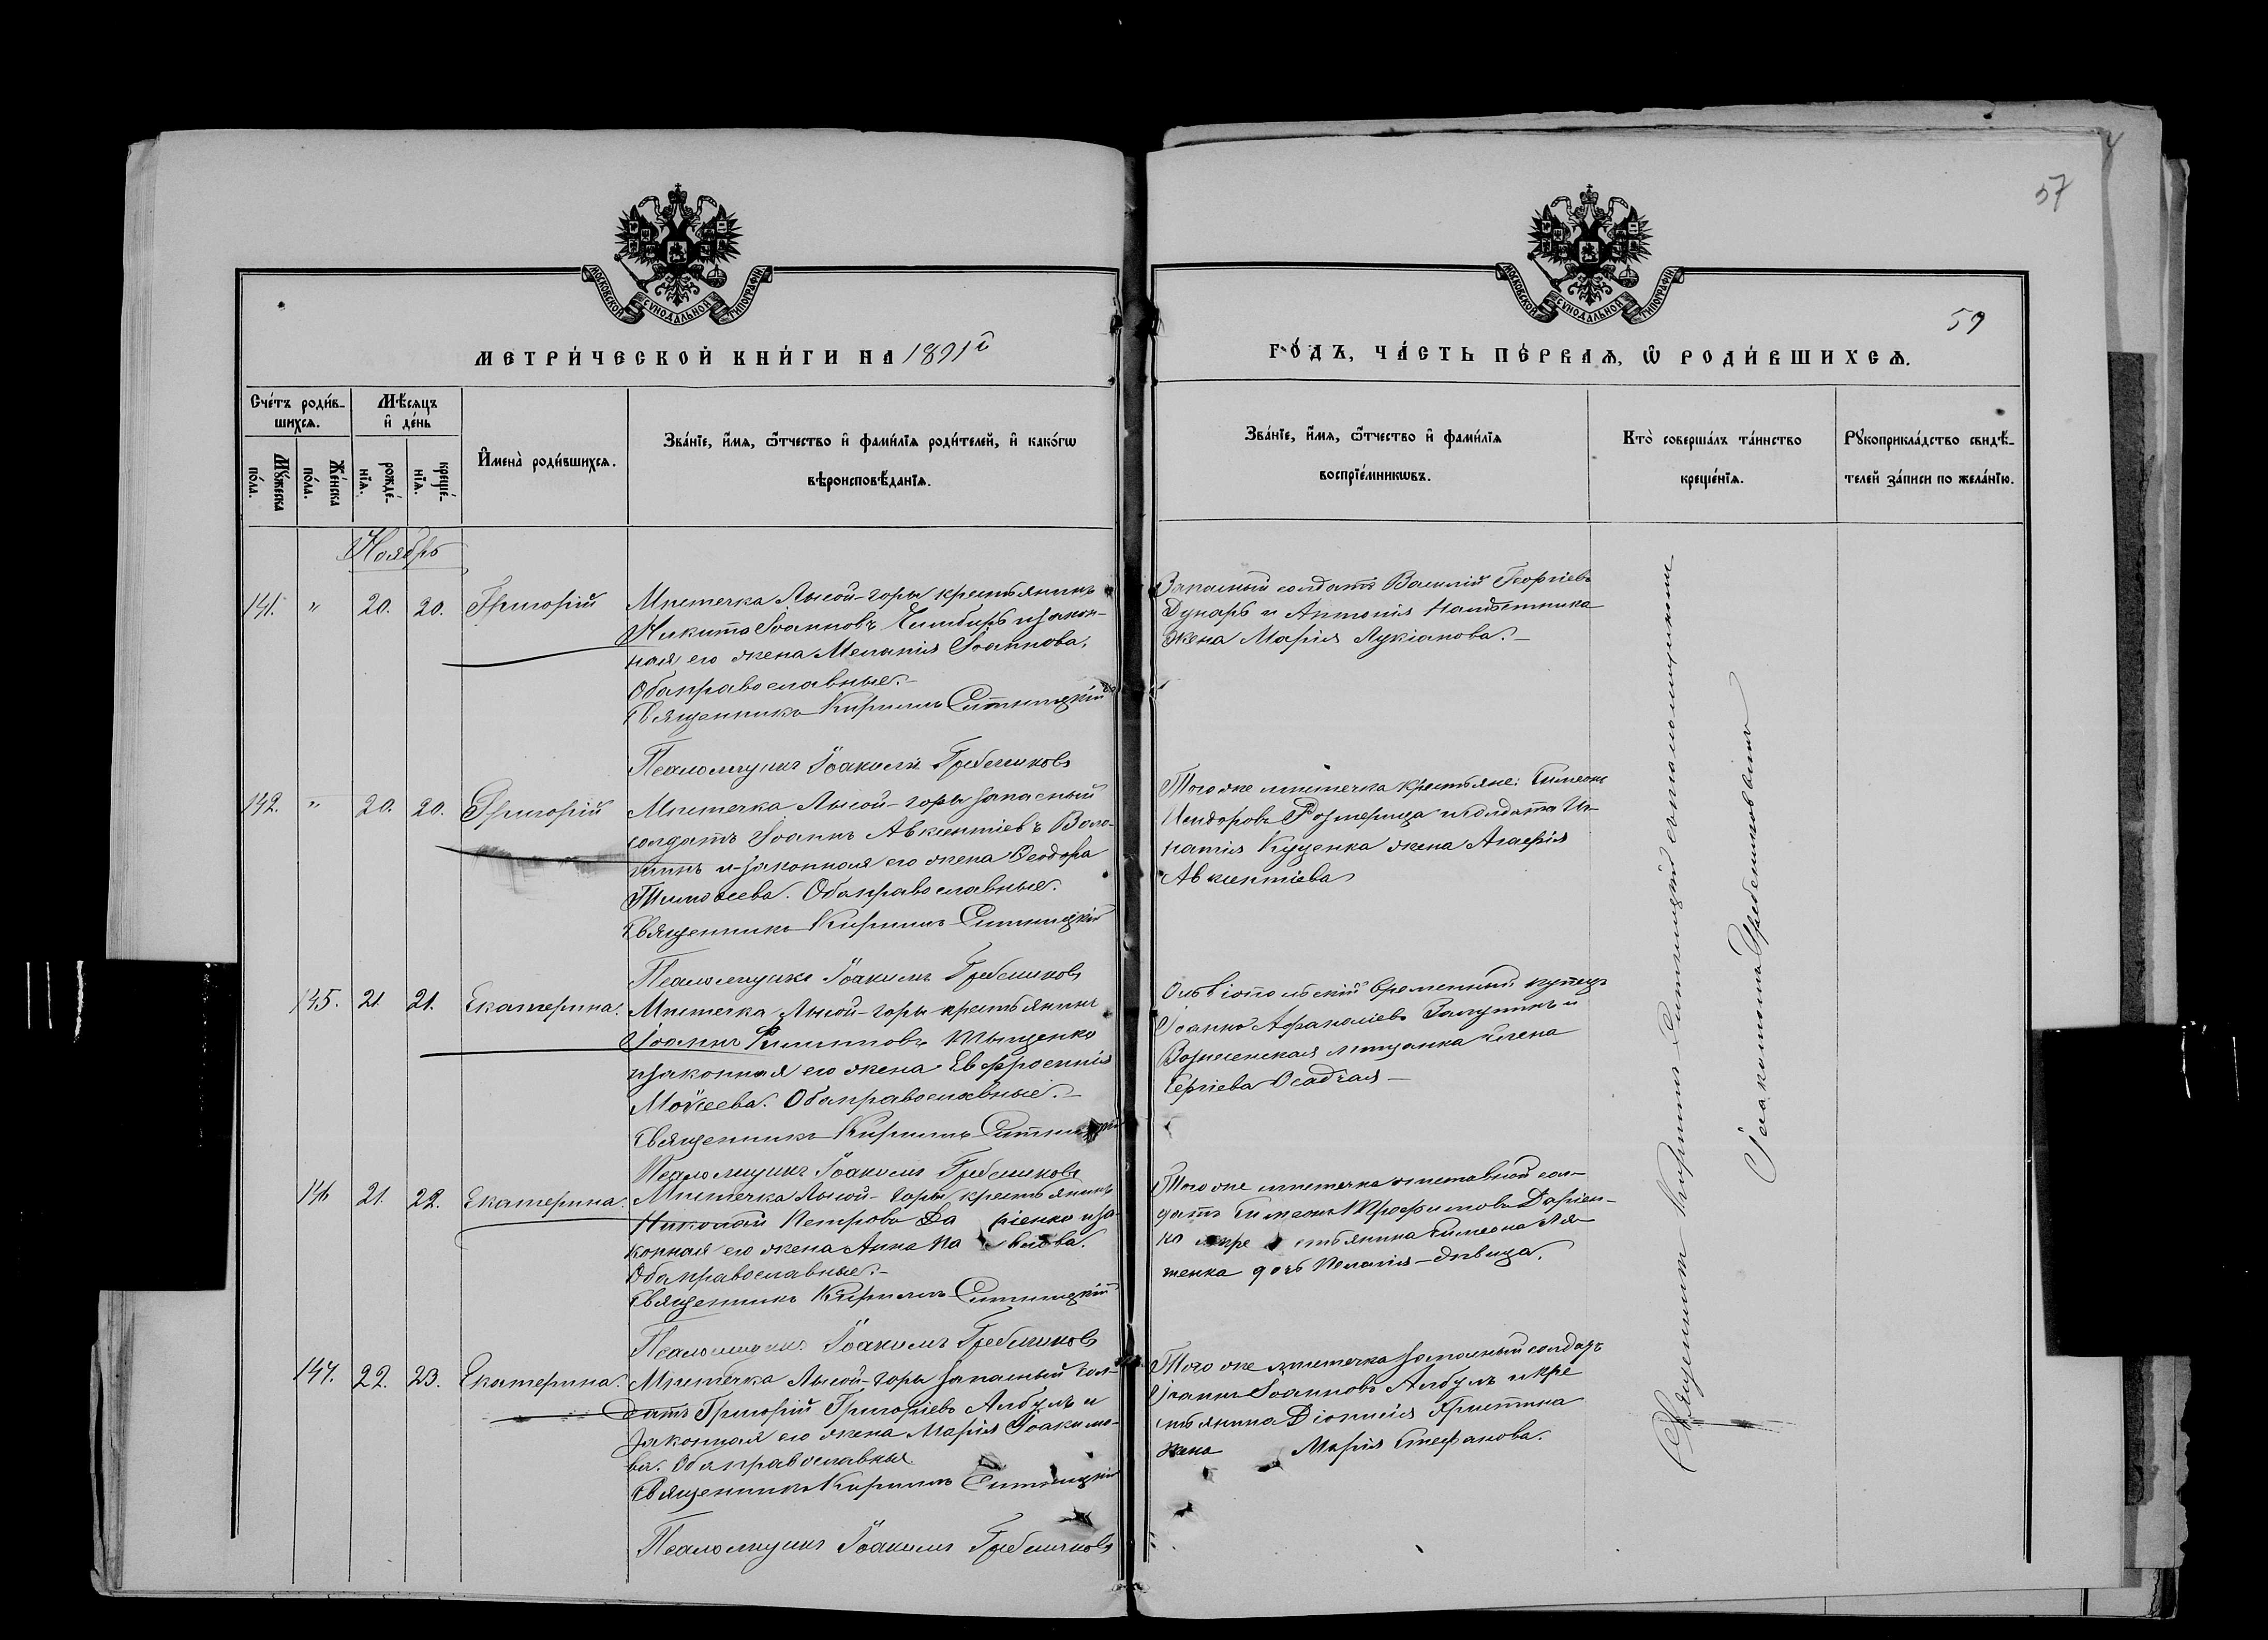 57
МОСКОВСКОЙ СѴНОДАЛЬНОЙ ТИПОГРАФІИ
МОСКОВСКОЙ СѴНОДАЛЬНОЙ ТИПОГРАФІИ
59
МЕТРИ́ЧЕСКОЙ КНИ́ГИ НА 1891й
ГО́ДЪ, ЧА́СТЬ ПЕ́РВАѦ, Ѡ҆ РОДИ́ВШИХСѦ.
Сче́тъ роди́в-
шихсѧ.
Мꙋ́жеска
по́ла.
Же́нска
по́ла.
Мѣ́сѧцъ
и҆ де́нь
рожде́-
нїѧ.
креще́-
нїѧ.
И҆мена̀ роди́вшихсѧ.
Зва́нїе, и҆́мѧ, ѻ҆́тчество и҆ фами́лїѧ роди́телей, и҆ како́гѡ
вѣроисповѣ́данїѧ.
Зва́нїе, и҆́мѧ, ѻ҆́тчество и҆ фами́лїѧ
воспрїе́мникѡвъ.
Кто̀ соверша́лъ та́инство
креще́нїѧ.
Рꙋкоприкла́дство свидѣ́-
телей за́писи по жела́нїю.
Ноябрь
141. " 20. 20. Григорій
Мѣстечка Лысой-горы крестьянинъ
Никита Іоанновъ и закон-
ная его жена Меланія Іоаннова.
Оба православные.-
Священникъ Кириллъ Ситницкій
Псаломщикъ Іоакимъ Гребениковъ
Запасный солдатъ Василій Георгіевъ
и Антонія
жена Марія Лукіанова.-
142. " 20. 20. Григорій
Мѣстечка Лысой-горы запасный
солдатъ Іоаннъ Авксентіевъ Воло-
шинъ и законная его жена Ѳеодора
Тимоѳеева. Оба православные.
Священникъ Кириллъ Ситницкій
Псаломщикъ Іоакимъ Гребениковъ
Того же мѣстечка крестьяне: Симеонъ
Исидоровъ и солдата Иг-
натія Куценка жена Агафія
Авксентіева
145. 21. 21. Екатерина.
Мѣстечка Лысой-горы крестьянинъ
Іоаннъ Филипповъ
и законная его жена Евфросинія
Моѵсеева. Оба православные.-
Священникъ Кириллъ Ситницкій
Псаломщикъ Іоакимъ Гребениковъ
Ольвіопольскій временный купецъ
Іоаннъ Афанасіевъ и
Вознесенская мѣщанка Елена
Сергіева Осадчая-
146 21. 22. Екатерина.
Мѣстечка Лысой-горы крестьянинъ
Николай Петровъ Да ріенко и за-
конная его жена Анна Па влова.
Оба православные.-
Священникъ Кириллъ Ситницкій
Псаломщикъ Іоакимъ Гребениковъ
Того же мѣстечка отставной сол-
датъ Симеонъ Трофимовъ Даріен-
ко и кре стьянина Симеона Ля-
шенка дочь Пелагія-дѣвица.
147. 22. 23. Екатерина.
Мѣстечка Лысой-горы запасный сол-
датъ Григорій Григоріевъ Албулъ и
законная его жена Марія Іоакимо-
ва. Оба православные
Священникъ Кириллъ Ситницкій
Псаломщикъ Іоакимъ Гребениковъ
Того же мѣстечка запасный солдатъ
Іоаннъ Іоанновъ Албулъ и кре
стьянина Діонисія
жена Марія Стефанова.
Священникъ Кириллъ Ситницкій съ псаломщикомъ
Іоакимомъ Гребениковымъ